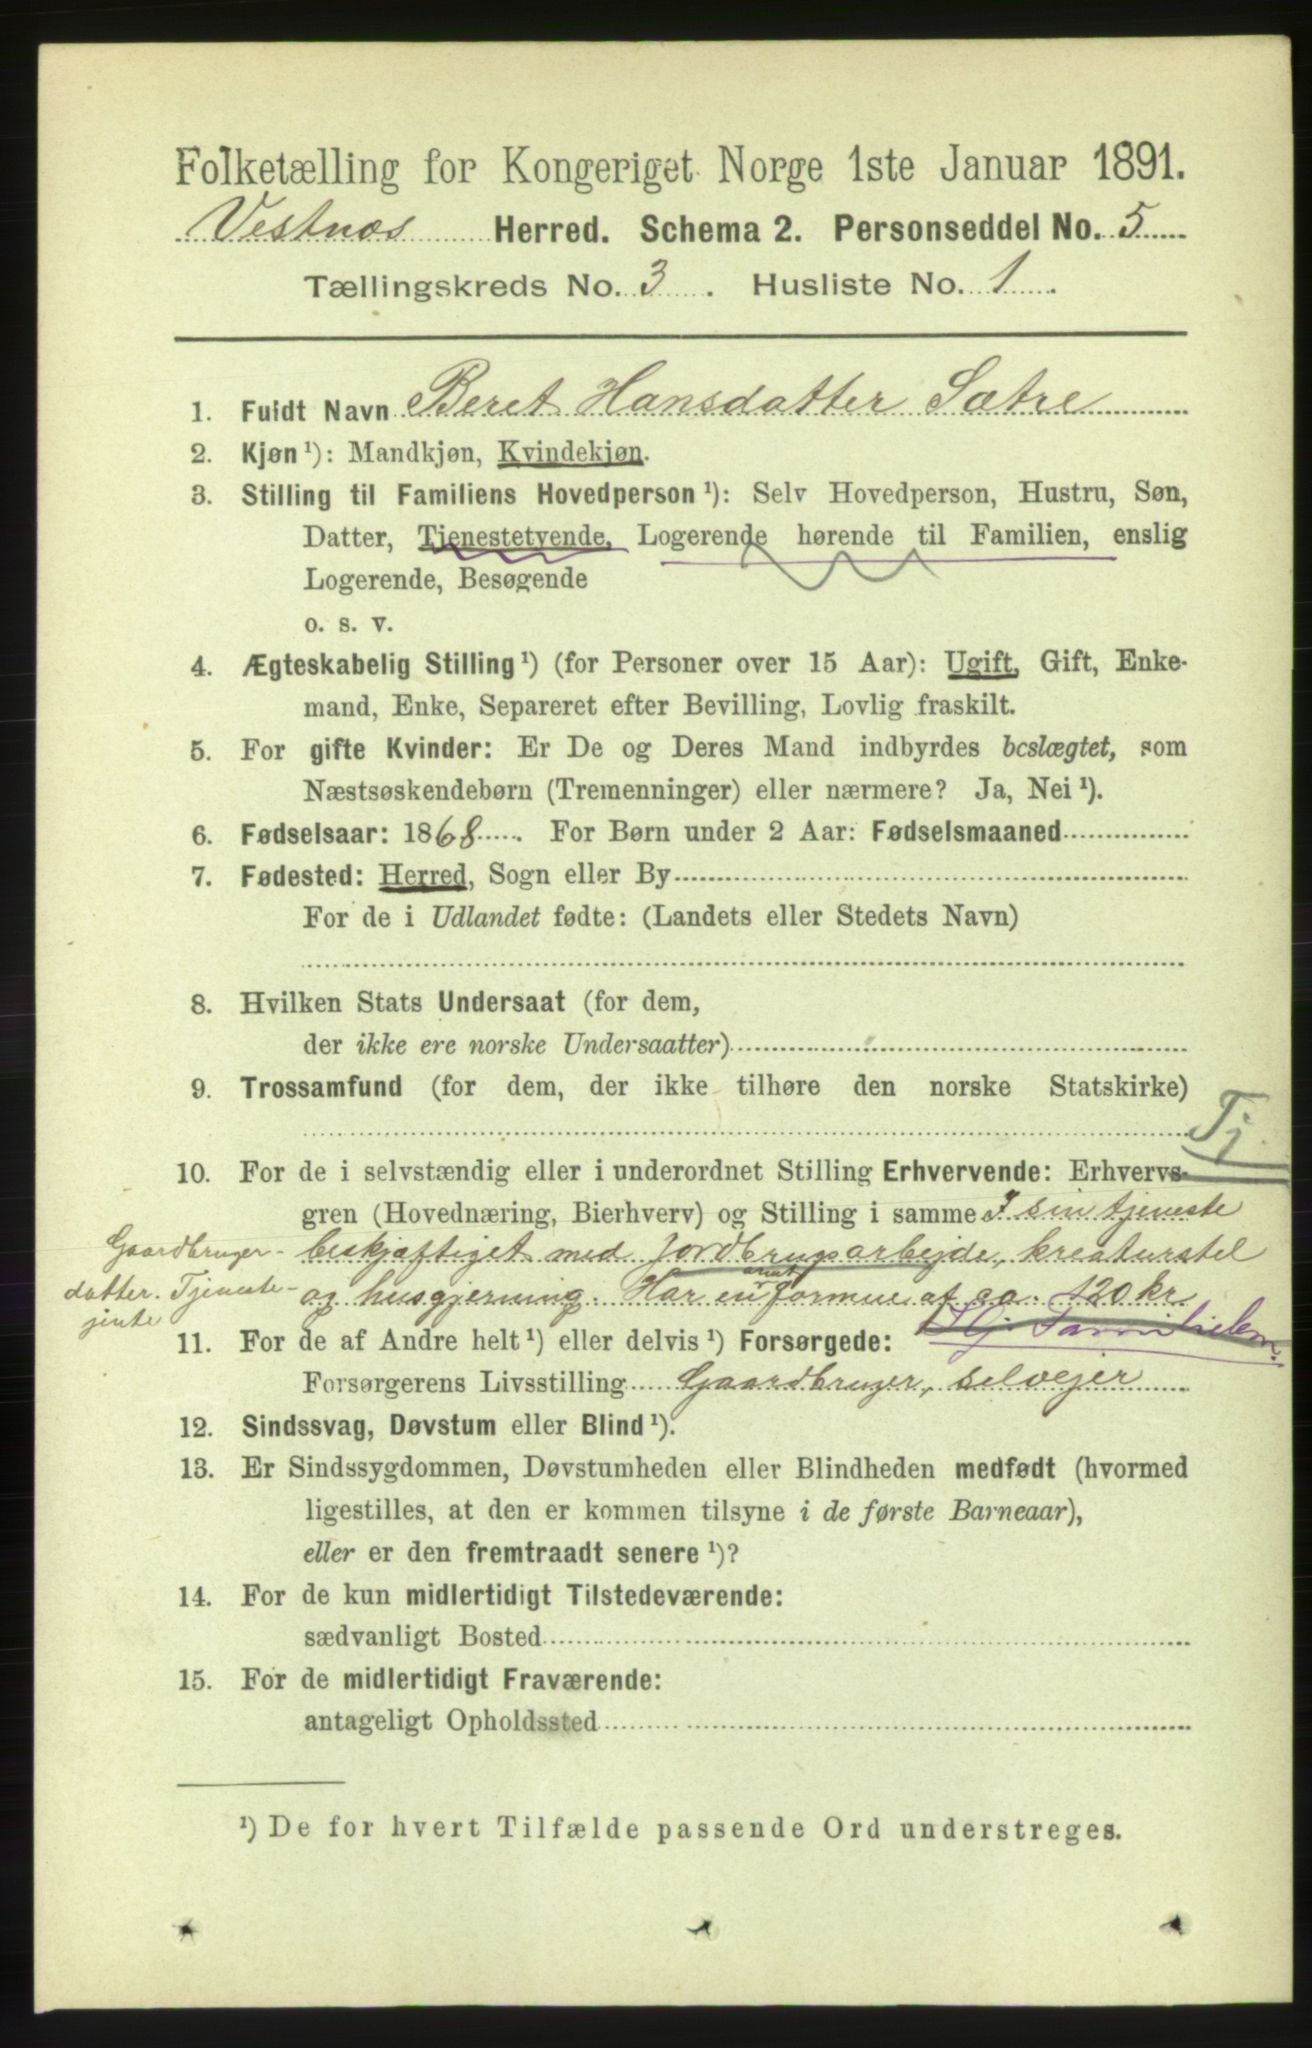 Folketælling for Kongeriget Norge 1ste Januar 1891.
Vestnæs Herred. Schema 2. Personseddel No. 5
Tællingskreds No. 3. Husliste No. 1.
1. Fuldt Navn Beret Hansdatter Sætre
2. Kjøn ¹): Mandkjøn, Kvindekjøn.
3. Stilling til Familiens Hovedperson ¹): Selv Hovedperson, Hustru, Søn,
Datter, Tjenestetyende, Logerende hørende til Familien, enslig
Logerende, Besøgende
o. s. v.
4. Ægteskabelig Stilling ¹) (for Personer over 15 Aar): Ugift, Gift, Enke-
mand, Enke, Separeret efter Bevilling, Lovlig fraskilt.
5. For gifte Kvinder: Er De og Deres Mand indbyrdes beslægtet, som
Næstsøskendebørn (Tremenninger) eller nærmere? Ja, Nei ¹).
6. Fødselsaar: 1868. For Børn under 2 Aar: Fødselsmaaned
7. Fødested: Herred, Sogn eller By
For de i Udlandet fødte: (Landets eller Stedets Navn)
8. Hvilken Stats Undersaat (for dem,
der ikke ere norske Undersaatter)
9. Trossamfund (for dem, der ikke tilhøre den norske Statskirke)
Tj.
10. For de i selvstændig eller i underordnet Stilling Erhvervende: Erhvervs-
gren (Hovednæring, Bierhverv) og Stilling i samme I sin tjeneste
Gaardbruger- beskjæftiget med Jordbrugsarbejde, kreaturstel
arvet
datter. Tjeneste- og husgjerning. Har en formue af ca. 120 kr
jente
11. For de af Andre helt ¹) eller delvis ¹) Forsørgede:
Forsørgerens Livsstilling Gaardbruger, selvejer
12. Sindssvag, Døvstum eller Blind ¹).
13. Er Sindssygdommen, Døvstumheden eller Blindheden medfødt (hvormed
ligestilles, at den er kommen tilsyne i de første Barneaar),
eller er den fremtraadt senere ¹)?
14. For de kun midlertidigt Tilstedeværende:
sædvanligt Bosted
15. For de midlertidigt Fraværende:
antageligt Opholdssted
¹) De for hvert Tilfælde passende Ord understreges.